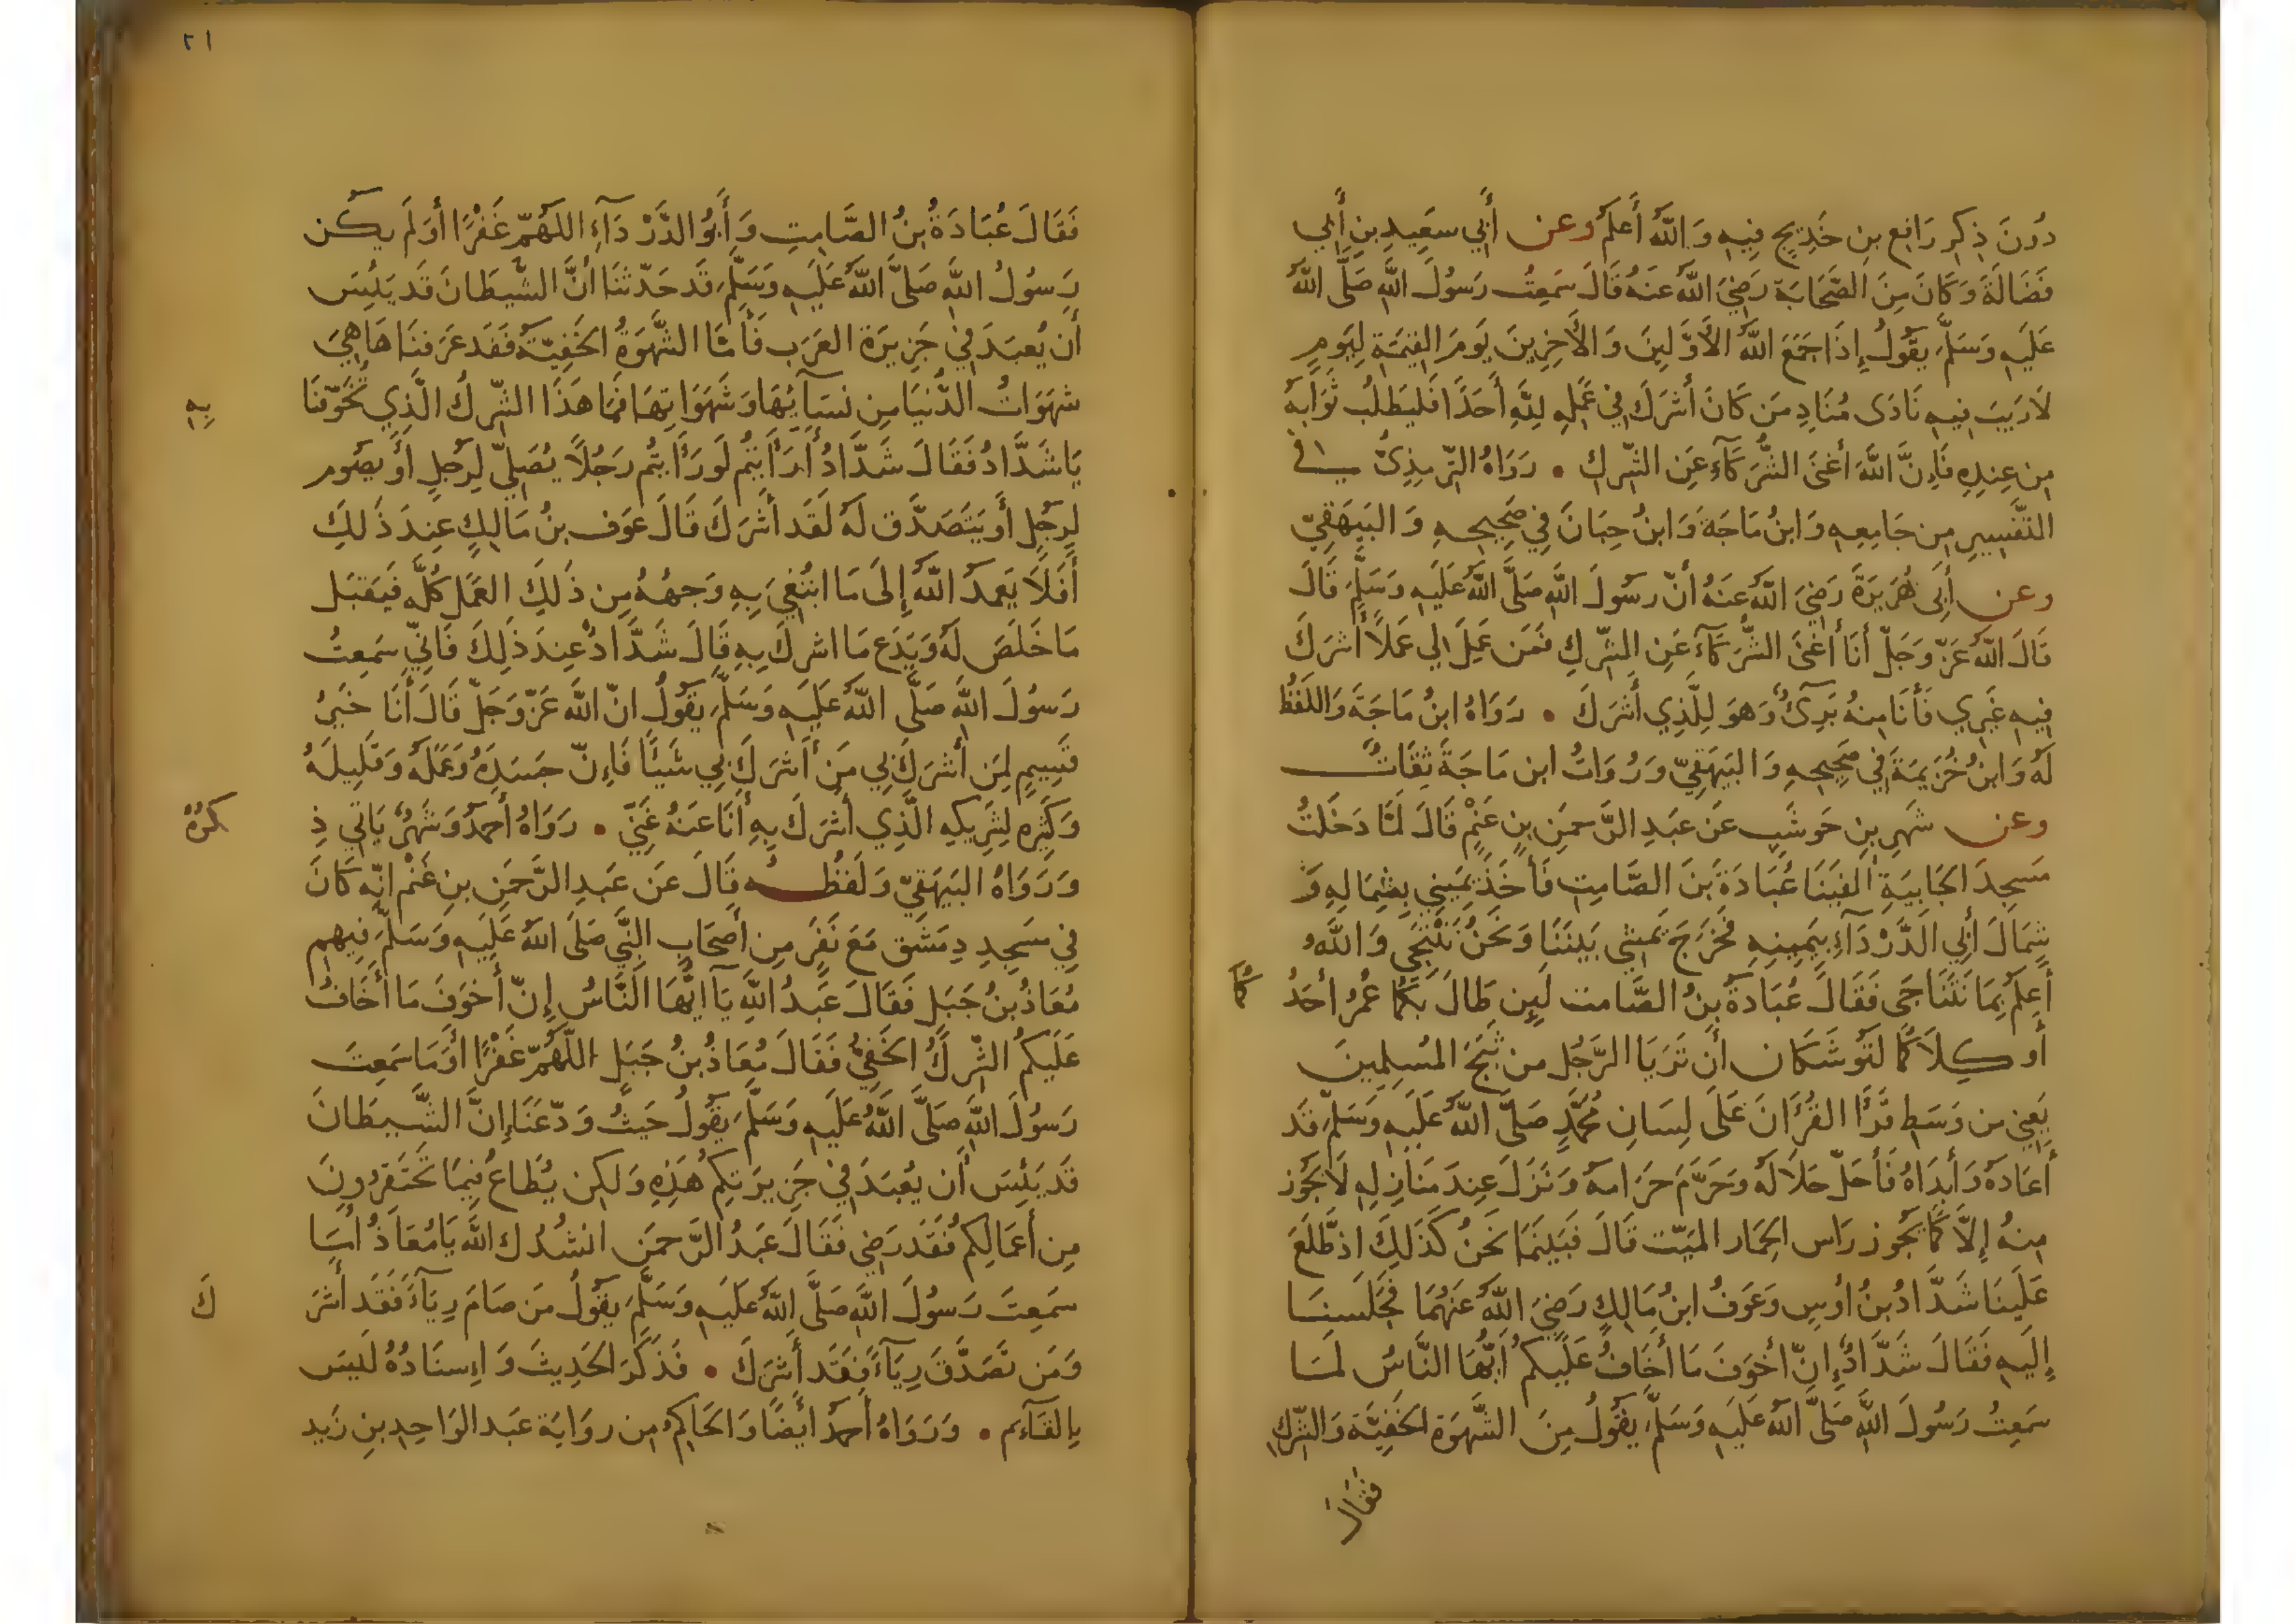 دُونَ ذِكِر رَافِع بِن خَدِيجٍ فِيهِ وَاللَّهُ أَعلَمُ وعن أَبِي سَعِيدِ بنِ أَبي
فَضَالَةَ وَكَانَ مِنَ الصَّحَابَة رَضِيَ اللَّهُ عَنهُ قَالَ سَمِعتُ رَسُولَ اللَّهِ صَلَّى اللَّهُ
عَلَيهِ وَسَلَّمَ يَقُولُ إِذَا جَمَعَ اللَّهُ الأَوَّلِينَ وَالأَخِرِينَ يَومَ القِيمَةِ لِيَومٍ
لَا رَيبَ فِيهِ نَادَى مُنَادٍ مَن كَانَ أَشرَكَ فِي عَمَلِهِ لِلَّهِ أَحَدًا فَليَطلُب ثَوَابَهُ
مِن عِندِهِ فَاِنَّ اللَّهَ أَغنَى الشُّرَكَآءِ عَنِ الشِّركِ • رَوَاهُ التِّرمِذِيُّ في
التَّفسِيرِ مِن جَامِعِهِ وَابنُ مَاجَةَ وَابنُ حِبَانَ فِي صَحِيحِهِ وَالبَيهَقِيّ
وعن أَبِى هُرَيرَةَ رَضِيَ اللَّهُ عَنهُ أَنّ رَسُولَ اللَّهِ صَلَّى اللَّهُ عَلَيهِ وَسَلَّمَ قَالَ
قَالَ اللَّهُ عَزّ وَجَلّ أَنَا أَغنَى الشُّرَكَآءِ عَنِ الشِّركِ فَمَن عَمِلَ لِي عَمَلًا أَشرَكَ
فِيهِ غَيرِي فَأَنَا مِنهُ بَرِىءٌ وَهوَ لِلَّذِي أَشرَكَ • رَوَاهُ ابنُ مَاجَةَ وَاللَفظُ
لَهُ وَابنُ خُزَيمَةَ فِي صَحِيحِهِ وَالبَيهَقِيّ وَرُوَاتُ ابن مَاجَةَ ثِقَاتٌ
وعن شَهرِ بِن حَوشَبٍ عَن عَبدِ الرَّحمَنِ بنِ غَنْمٍ قَالَ لَمَّا دَخَلتُ
مَسجِدَ الجَابِيَةِ الفَينَا عُبَادَةَ بنَ الصَّامِتِ فَأَخَذَ يَمِينِي بِشِمَالِهِ وَ
شِمَالَ أَبِي الدَّرْدَآءِ بِيَمِينِهِ فَخَرَجَ يَمشِي بَينَنَا وَنَحنُ نَنتَجِي وَاللَّهُ
أَعلَمُ بِمَا نَتَنَاجَى فَقَالَ عُبَادَةُ بنُ الصَّامت لَئِن طَالَ بِكُمَا عُمُرُ أَحَدُ
كُمَا
أو كِلَاكُمَا لَتُوشَكَان أَن تَرَيَا الرَّجُل من ثَبَجِ المُسلِمِينَ
يَعنِي مِن وَسَطِ قَرَأَ القُرأَنَ عَلَى لِسَانِ مُحَمَّدٍ صَلَّى اللَّهُ عَلَيهِ وَسَلَّمَ قَد
أَعَادَهُ وَأَبدَاهُ فَأَحَلّ حَلَالَهُ وَحَرَّمَ حَرَامهُ وَنَزَلَ عِندَ مَنَازِلِهِ لَا يَجُوز
مِنهُ إِلَّا كَمَا يَجُوز رَاس الحِمَار المَيّت قَالَ فَبَينَمَا نَحنُ كَذَلِكَ اذ طَّلَعَ
عَلَينَا شَدَّادُ بنُ أَوسٍ وَعَوفُ ابنُ مَالِكٍ رَضِيَ اللَّهُ عَنهُمَا فَجَلَسنَا
إِلَيهِ فَقَالَ شَدَّادٌ إِنّ أَخوَفَ مَا أَخَافُ عَلَيكُم أَيُّهَا النَّاسُ لَمَا
سَمِعتُ رَسُولَ اللَّهِ صَلَّى اللَّهُ عَلَيهِ وَسَلَّمَ يَقُولُ مِنَ الشَّهوَة الخَفِيَّة وَالشِّركِ
فقال
٢١
فَقَالَ عُبَادَةُ بنُ الصَّامِتِ وَأَبُو الدَّرْدَآءِ اللَهُمّ غَفْرًا أَوَلَم يكُن
رَسُولُ اللَّهِ صَلَّى اللَّهُ عَلَيهِ وَسَلَّمَ قَد حَدّثَنَا أَنَّ الشَّيطَانَ قَد يَئِسَ
أَن يُعبَدَ فِي جَزِيرَة العَرَبِ فَأَمَّا الشَّهوَةُ الخَفِيّةُ فَقَد عَرَفنَاهَا هِيَ
شَهَوَاتُ الدُّنيَا مِن نسَآئِهَا وَشَهَوَاتِهَا فَمَا هَذَا الشِّركُ الَّذِي تُخَوّفنَا
بِهِ
يَا شَدَّادُ فَقَالَ شَدَّادُ أَرَأَيتُم لَو رَأَيتُم رَجُلًا يُصَلِّي لِرَجُلٍ أَو يَصُوم
لِرَجُلٍ أَو يَتَصَدَّق لَهُ لَقَد أَشرَكَ قَالَ عَوف بنُ مَالِكٍ عِندَ ذَلِكَ
أَفَلَا يَعمدُ اللَّهُ إِلَى مَا ابتُغِيَ بِهِ وَجهُهُ مِن ذَلِكَ العَمَل كُلّه فَيَقبَل
مَا خَلَصَ لَهُ وَيَدَع مَا اشرِكَ بِهِ قَالَ شَدَّادُ عِندَ ذَلِكَ فَاِنِّي سَمِعتُ
رَسُولَ اللَّهِ صَلَّى اللَّهُ عَلَيهِ وَسَلَّمَ يَقُولُ انّ اللَّهَ عَزّ وَجَلّ قَالَ أَنَا خَيرُ
قَسِيمٍ لِمَن أَشرَكَ بِي مَن أَشرَكَ بِي شَيئًا فَاِنّ جَسَدِهُ وَعَمَلهُ وَقَلِيلَهُ
وَكَثِيرِه لِشَرِيكِهِ الَّذِي أَشرَكَ بِهِ أَنَا عَنهُ غَنِيٌّ • رَوَاهُ أَحمدُ وَشَهرٌ يَاتي ذِ
كرُهُ
وَرَوَاهُ البَيهَقِيّ وَلَفظُــهُ قَالَ عَن عَبدِ الرَّحمَنِ بنِ غَنْم اِنّه كَانَ
فِي مَسجِدِ دِمَشق مَعَ نَفَرٍ مِن أَصحَابِ النَّبِيّ صَلَى اللَّهُ عَلَيهِ وَسَلَّمَ فِيهِم
مُعَاذُ بنُ جَبَلٍ فَقَالَ عَبدُ اللَّهِ يَآ ايُّهَا النَّاسُ إِنّ أَخوَفَ مَا أَخَافُ
عَلَيكُم الشِّركُ الخَفِيُّ فَقَالَ مُعَاذُ بنُ جَبَلٍ اللَّهُمّ غَفْرًا أَوَمَا سَمِعتَ
رَسُولَ اللَّهِ صَلَّى اللَّهُ عَلَيهِ وَسَلَّمَ يَقُولُ حَيثُ وَدّعَنَا إِنَّ الشَّيطَانَ
قَد يَئِسَ أَن يُعبَدَ فِي جَزِيرَتِكُم هَذِهِ وَلَكِن يُطَاعُ فِيمَا تَحتَقِرُونَ
مِن أَعمَالِكُم فَقَد رَضِي فَقَالَ عَبدُ الرَّحمَنِ انشُدُك اللَّه يَا مُعَاذُ أَمَا
سَمِعتَ رَسُولَ اللَّهِ صَلَّى اللَّهُ عَلَيهِ وَسَلَّمَ يَقُولُ مَن صَامَ رِيَآءً فَقَد أَشرَ
كَ
وَمَن تَصَدَّقَ رِيَآءً فَقَد أَشرَكَ • فَذَكَرَ الحَدِيثَ وَاِسنَادُهُ لَيسَ
بِالقَآئِم • وَرَوَاهُ أَحمدُ ايضًا وَالحَاكِمُ مِن روَايَة عَبد الوَاحِدِ بنِ زَيد